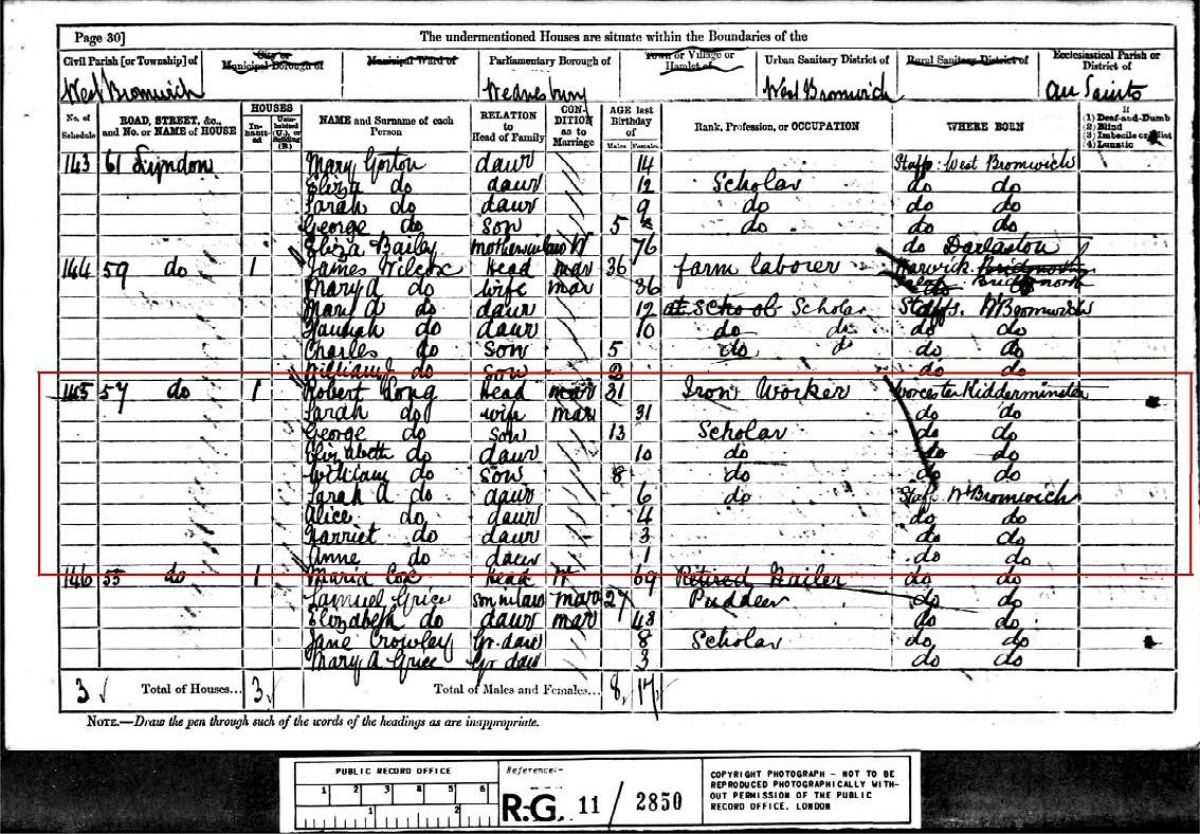 Page 30]
The undermentioned Houses are situate within the Boundaries of the
Civil Parish [or Township] of
City or Municipal Borough of
Municipal Ward of
Parliamentary Borough of
Town or Village or Hamlet of
Urban Sanitary District of
Rural Sanitary District of
Ecclesiastical Parish or District of
West Bromwich Wednesbury West Bromwich All Saints
No. of Schedule
ROAD, STREET, &c., and No. or NAME of HOUSE
HOUSES
Inhabited
Uninhabited (U.), or Building (B.)
NAME and Surname of each Person
RELATION to Head of Family
CONDITION as to Marriage
AGE last Birthday of
Males Females
Rank, Profession, or OCCUPATION
WHERE BORN
If
(1) Deaf-and-Dumb
(2) Blind
(3) Imbecile or Idiot
(4) Lunatic
143 61 Lyndon Mary Gorton daur 14 Staffs West Bromwich
Eliza do daur 12 Scholar do do
Sarah do daur 9 do do do
George do son 5 do do do
Eliza Bailey mother in law W 76 do Darlaston
144 59 do 1 James Wilcox Head mar 36 farm laborer Warwick
Mary A do wife mar 36 Bridgnorth
Mary A do daur 12 at School Scholar Staffs. W Bromwich
Hannah do daur 10 do do do do
Charles do son 5 do do do do
William J do son 2 do do
145 57 do 1 Robert Long Head mar 31 Iron Worker Worcester Kidderminster
Sarah do wife mar 31 do do
George do Son 13 Scholar do do
Elizabeth do daur 10 do do do
William do Son 8 do do do
Sarah A do daur 6 do Staffs W Bromwich
Alice do daur 4 do do
Harriet do daur 3 do do
Anne do daur 1 do do
146 55 do 1 Maria Cox Head W 69 Retired Nailer do do
Samuel Grice son in law mar 27 Puddler do do
Elizabeth do daur mar 43 do do
Jane Crowley Gr. daur 8 Scholar do do
Mary A Grice Gr daur 3 do do
3 Total of Houses... 3 Total of Males and Females... 8 17
NOTE.—Draw the pen through such of the words of the headings as are inappropriate.
PUBLIC RECORD OFFICE
1 2 3 4 5 6
1 2
Reference:-
R.G. 11 / 2850
COPYRIGHT PHOTOGRAPH - NOT TO BE
REPRODUCED PHOTOGRAPHICALLY WITH-
OUT PERMISSION OF THE PUBLIC
RECORD OFFICE, LONDON